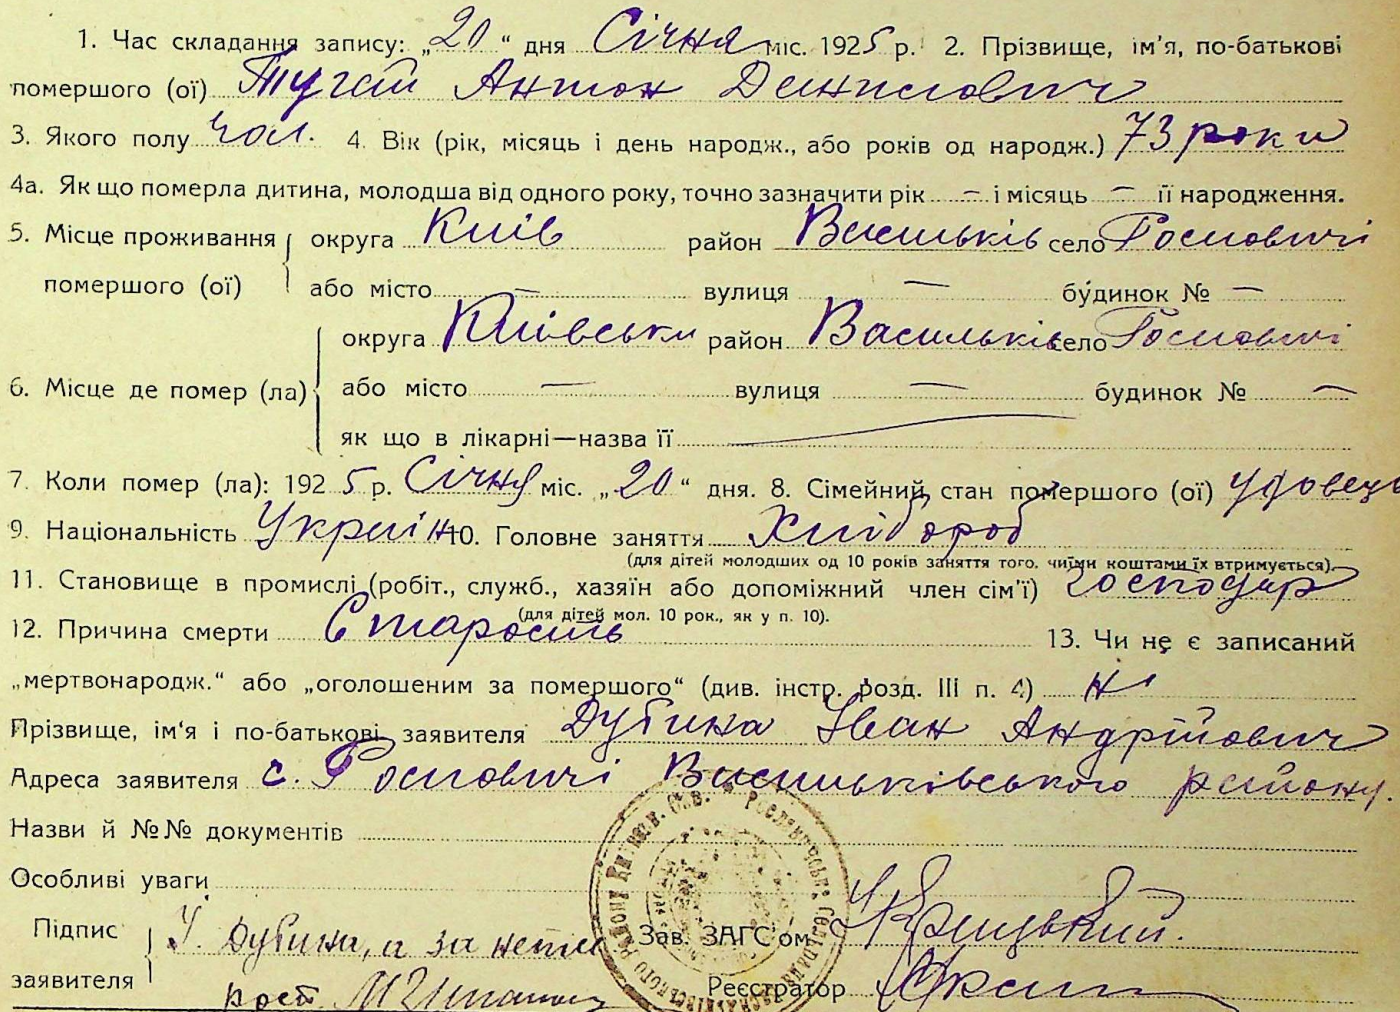 1. Час складання запису: „20“ дня Січня міс. 1925 р. 2. Прізвище, ім'я, по-батькові
помершого (ої) Антон Денисович
3. Якого полу чол. 4. Вік (рік, місяць і день народж., або років од народж.) 73 роки
4а. Як що померла дитина, молодша від одного року, точно зазначити рік — і місяць — її народження.
5. Місце проживання округа Київ район Васильків село Росповичі
помершого (ої) або місто — вулиця — будинок № —
округа Київськ район Васильків село
6. Місце де помер (ла) або місто — вулиця — будинок № —
як що в лікарні—назва її
7. Коли помер (ла): 1925 р. Січня міс. „20“ дня. 8. Сімейний стан помершого (ої) удовець
9. Національність Україн 10. Головне заняття Хлібороб
(для дітей молодших од 10 років заняття того, чиїми коштами їх втримується).
11. Становище в промислі (робіт., служб., хазяїн або допоміжний член сім'ї) господар
(для дітей мол. 10 рок., як у п. 10).
12. Причина смерти Старость 13. Чи не є записаний
„мертвонародж.“ або „оголошеним за помершого“ (див. інстр. розд. III п. 4) ні
Прізвище, ім'я і по-батькові заявителя Дубина Іван Андрійович
Адреса заявителя с. Васильківського району.
Назви й №№ документів
Особливі уваги
Підпис І. Дубина, а за Зав. ЗАГС'ом
заявителя Реєстратор